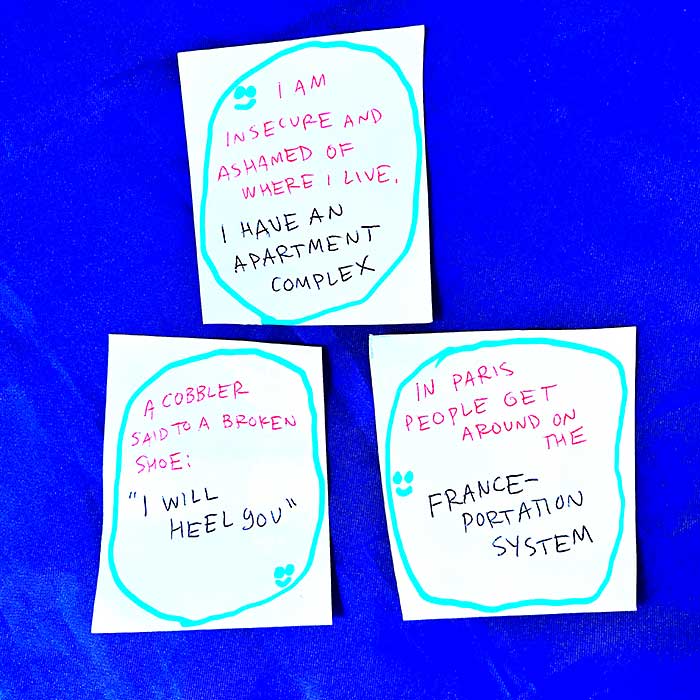 I AM
INSECURE AND
ASHAMED OF
WHERE I LIVE.
I HAVE AN
APARTMENT
COMPLEX
A COBBLER
SAID TO A BROKEN
SHOE:
"I WILL
HEEL YOU"
IN PARIS
PEOPLE GET
AROUND ON
THE
FRANCE-
PORTATION
SYSTEM